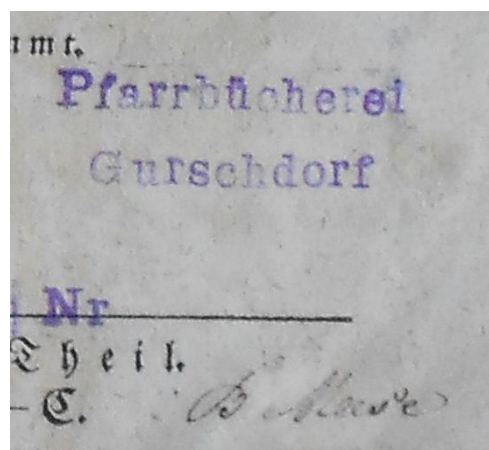 mmt.
Pfarrbücherei
Gurschdorf
Nr
Theil.
– C.
B